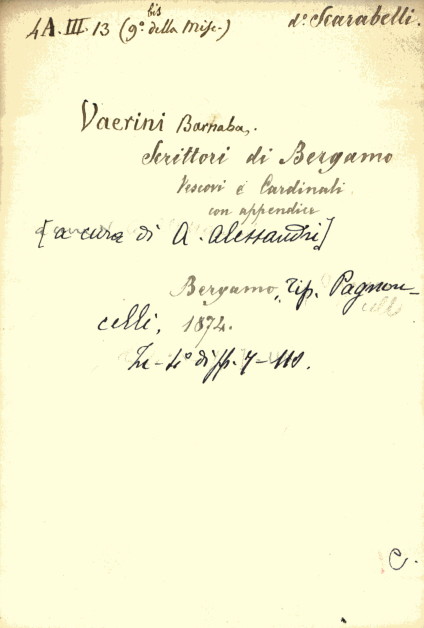 bis
4A. III. 13 (9º. della Misc.) dº. Scarabelli.
Vaerini Barnaba,.
Scrittori di Bergamo
Vescovi e Cardinali
con appendice
[a cura di A. Alessandri]
Bergamo, Tip. Pagnon-
celli, 1874.
In-4º di pp. 7-118.
C.